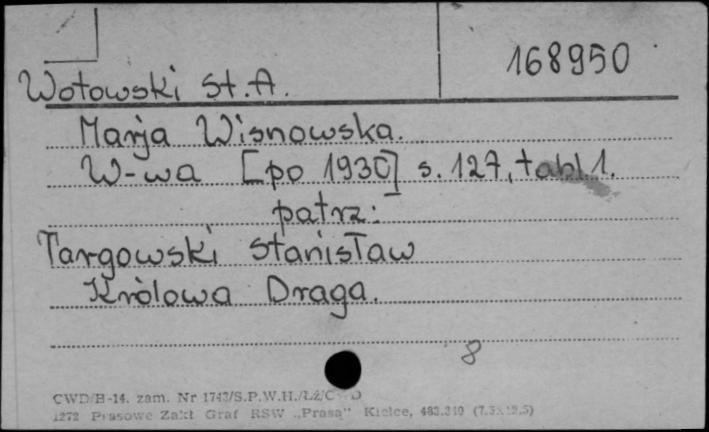 168950
Wotowski St. A.
Marja Wisnowska.
W-wa [po 1930] s. 127, tabl 1.
patrz:
Targowski Stanisław
Królowa Draga.
8
CWD/B-14. zam. Nr 1743/S.P.W.H./Łź/C
1272 Prasowe Zakł Graf RSW „Prasa" Kielce, 483.340 (7.5x12.5)